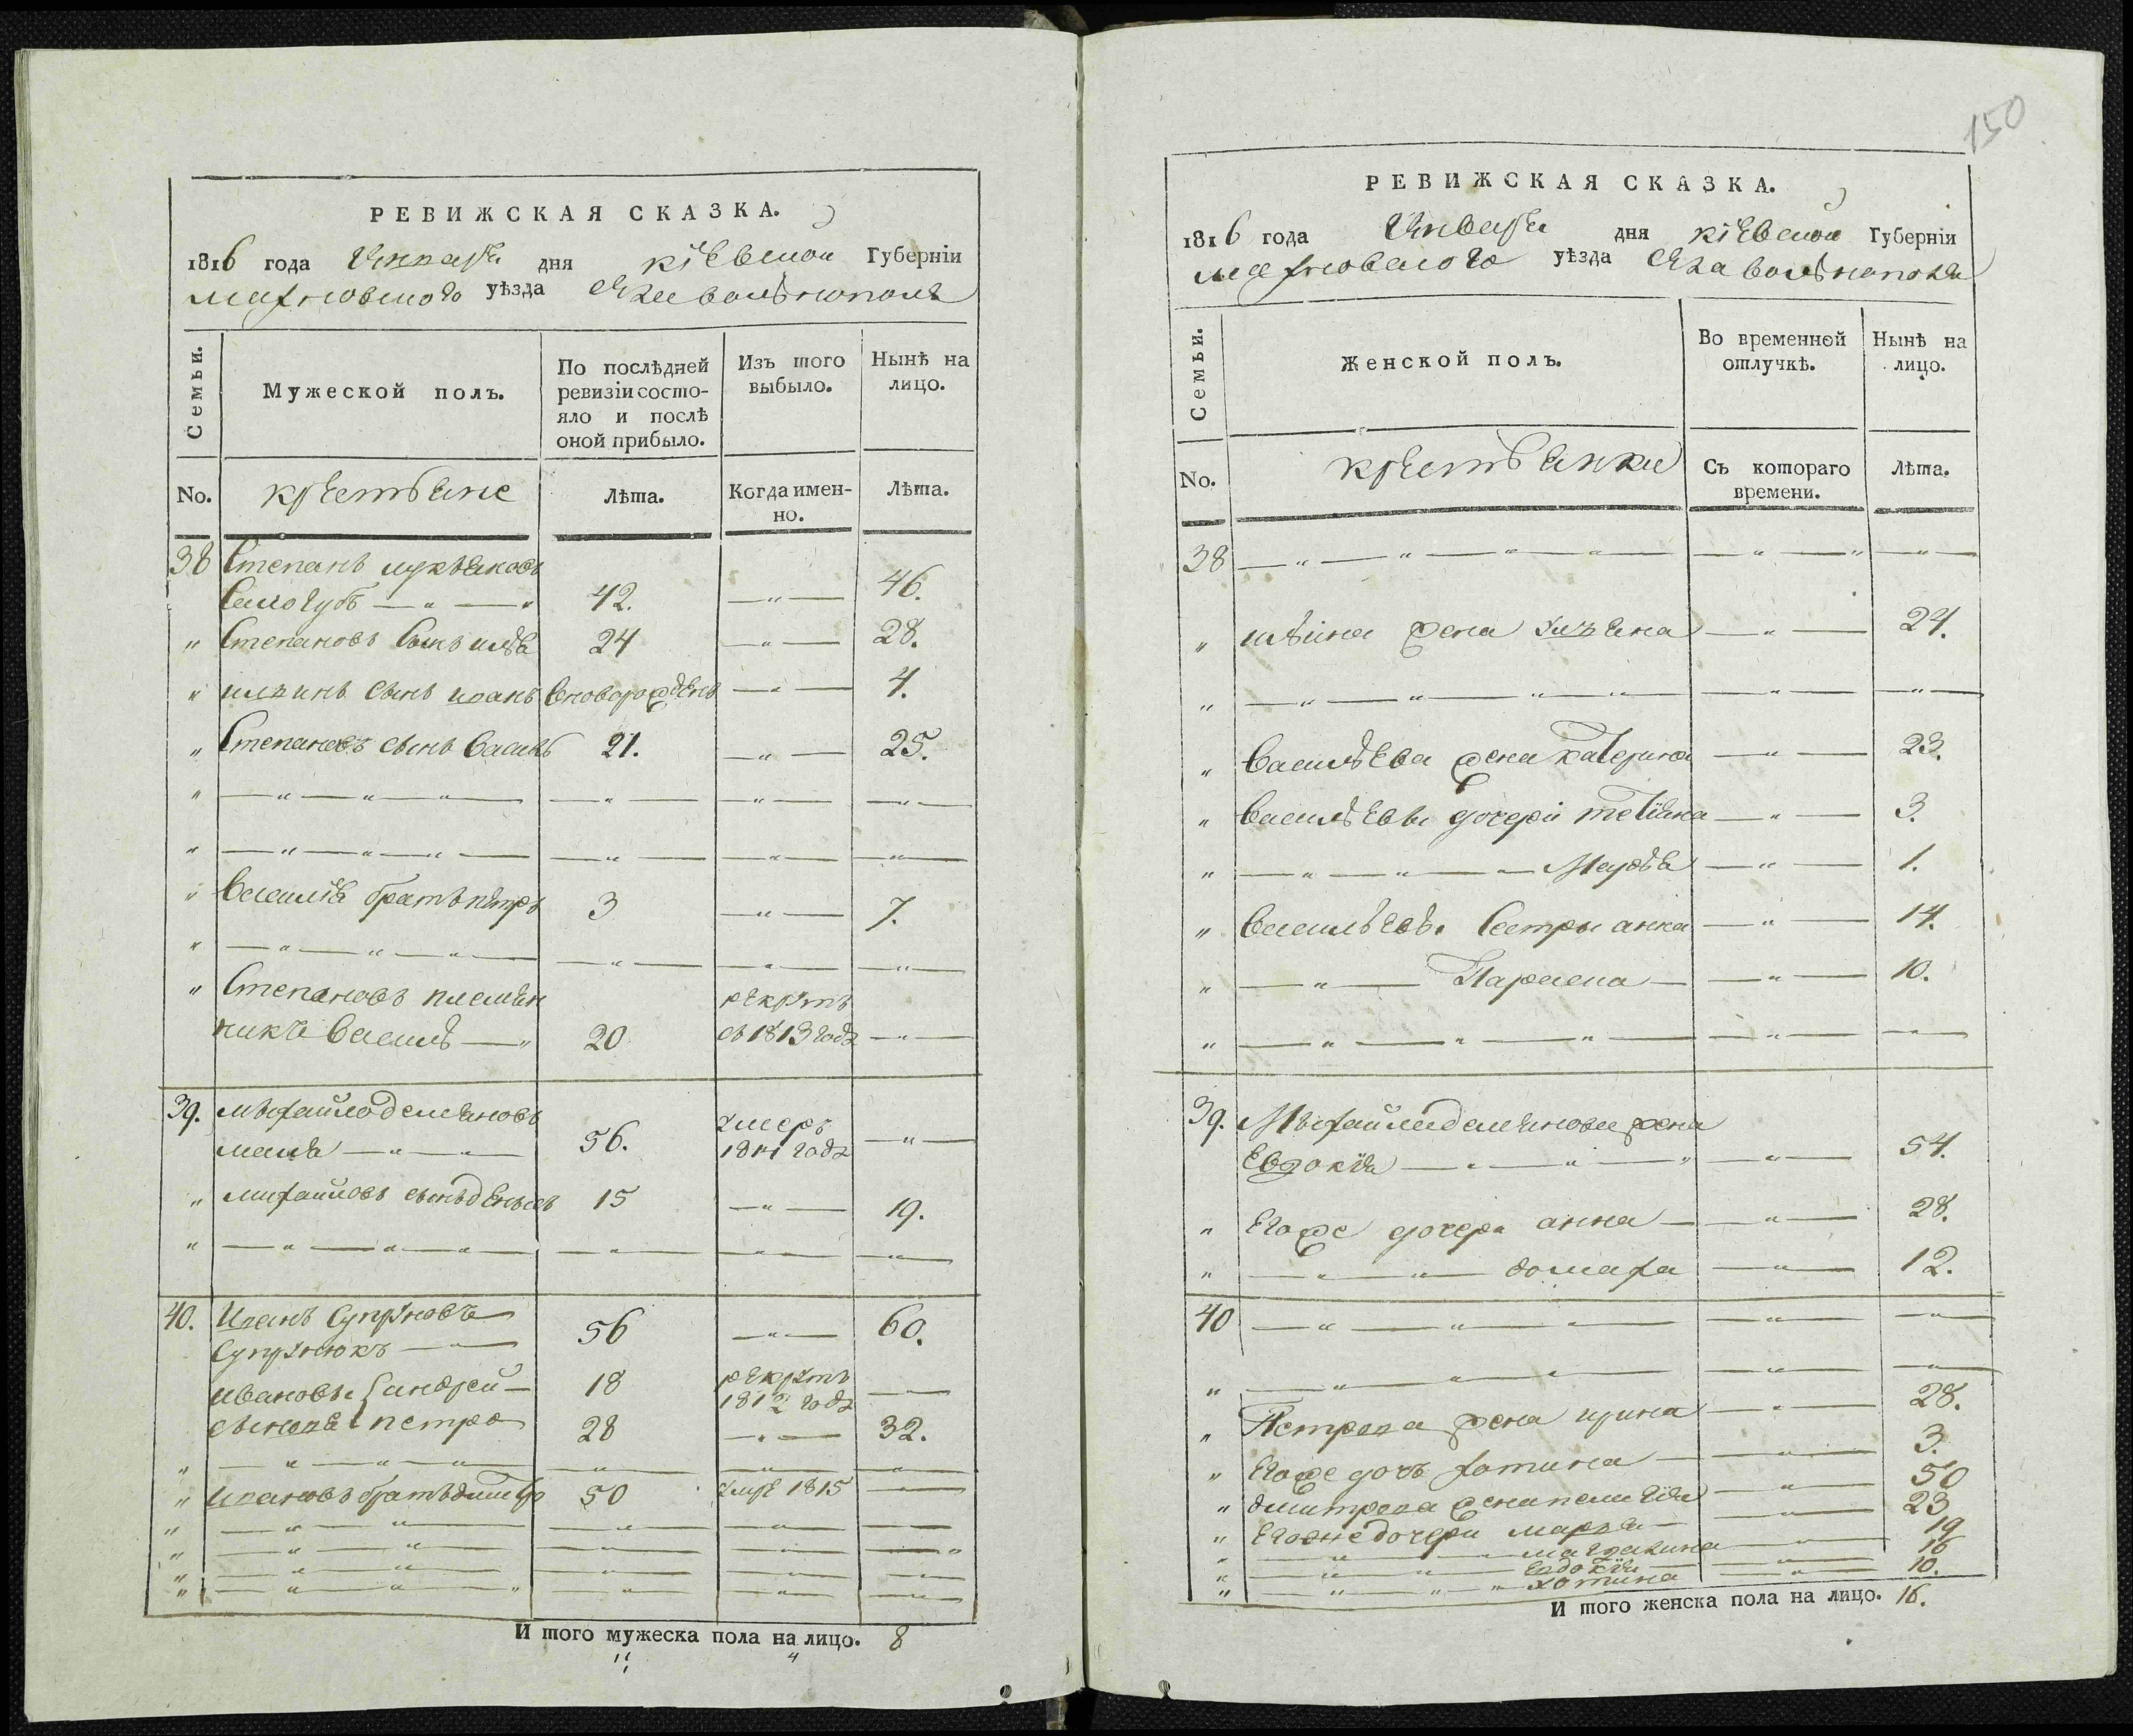 РЕВИЖСКАЯ СКАЗКА.
1816 года Генваря дня кіевской Губерніи
махновского уѣзда
Семьи.
Мужеской полъ.
По послѣдней ревизіи состо-
яло и послѣ
оной прибыло.
Изъ того
выбыло.
Нынѣ на
лицо.
No.
крестьяне
Лѣта.
Когда имен-
но.
Лѣта.
38 Степанъ
42. —„— 46.
„ Степановъ сынъ илья 24 —„— 28.
„ ильинъ сынъ иванъ вноворожденъ —„— 4.
„ Степановъ сынъ василь 21. —„— 25.
„ —„—„— —„— —„— —„—
„ —„—„—„— —„— —„— —„—
„ Василя братъ петръ 3 —„— 7.
„ —„—„—„— —„— —„— —„—
„ Степановъ племян рекрутъ
никъ василь —„ 20 съ 1813 года —„—
39. михайло демяновъ умеръ
—„—„— 56. 1811 года —„—
„ михайловъ сынъ денысъ 15 —„— 19.
„ —„—„—„— —„— —„— —„—
40. Иванъ Супруновъ
Супрунюкъ — 56 —„— 60.
ивановы { андрей — 18 рекрутъ
1812 года —
сыновя { петро 28 —„— 32.
„ —„—„—„— —„— —„— —„—
„ ивановъ братъ дмитро 50 умре 1815 —„—
„ —„—„— —„— —„— —„—
„ —„—„— —„— —„— —„—
„ —„—„— —„— —„— —„—
„ —„—„—„ —„— —„— —„—
И того мужеска пола на лицо. 8
150
РЕВИЖСКАЯ СКАЗКА.
1816 года Генваря дня кіевской Губерніи
махновского уѣзда
Семьи.
Женской полъ.
Во временной
отлучкѣ.
Нынѣ на
лицо.
No.
крестьянки
Съ котораго
времени.
Лѣта.
38 —„—„—„—„— —„—„ —„—
„ ильина жена ульяна —„— 24.
„ —„—„—„—„ —„— —„—
„ Васильева жена катерина —„— 23.
„ Васильевы дочери тетіяна —„— 3.
„ —„—„—„— Марья —„— 1.
„ Васильевы сестры анна —„— 14.
„ —„— Параска — —„— 10.
„ —„—„—„— —„— —„—
39. Михайла демянова жена
Евдокія —„—„—„ —„— 54.
„ Егоже дочери анна — —„— 28.
„ —„—„— домаха —„— 12.
40 —„—„—„— —„— —„—
„ —„—„—„— —„— —„—
„ Петрова жена ирина —„— 28.
„ Егоже дочь хотина — —„— 3.
„ дмитрова жена пелагія —„— 50
„ Егоже дочери марья — —„— 23
„ —„—„— магдалина —„— 19
„ —„—„— Евдокія —„— 16
„ —„—„—„ хотина —„— 10.
И того женска пола на лицо. 16.